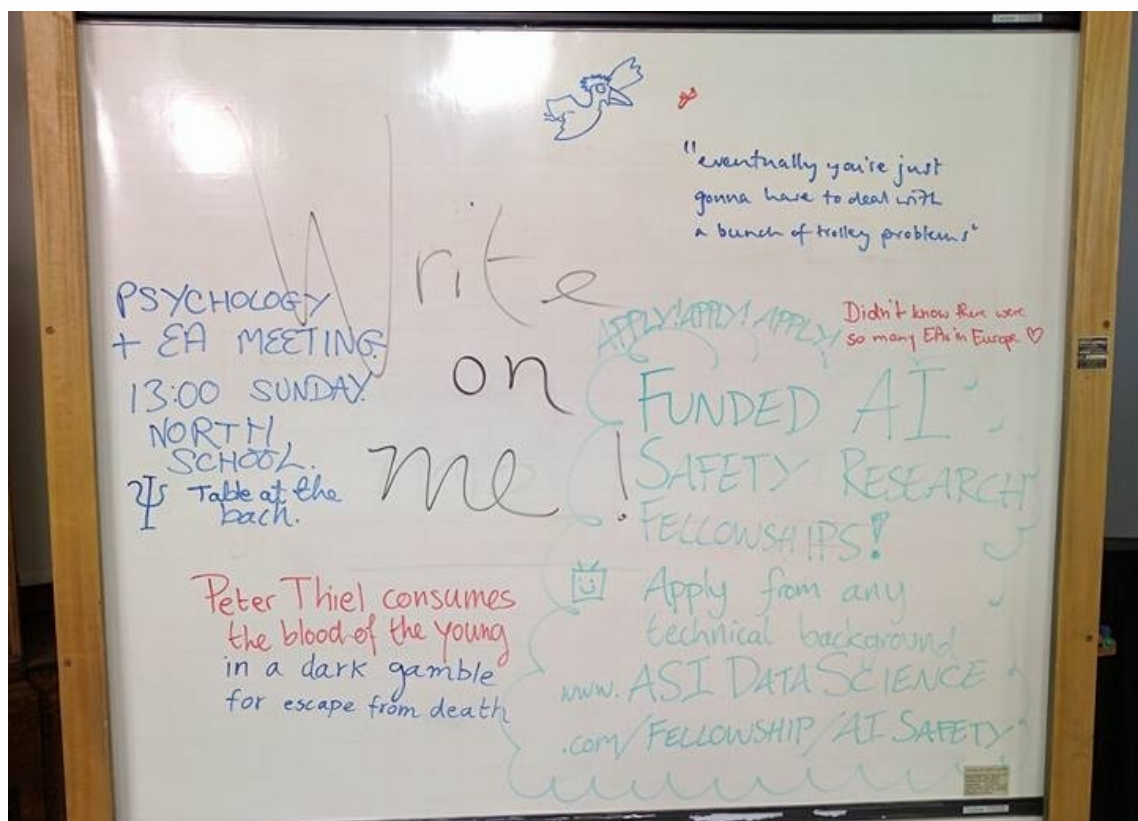 "eventually you're just
gonna have to deal with
a bunch of trolley problems"
Write
on
me!
PSYCHOLOGY
+ EA MEETING.
13:00 SUNDAY.
NORTH
SCHOOL.
Ψ Table at the
bach.
APPLY! APPLY! APPLY!
Didn't know there were
so many EAs in Europe ♡
FUNDED AI
SAFETY RESEARCH
FELLOWSHIPS!
Apply from any
technical background
www.ASI DATA SCIENCE
.com/FELLOWSHIP/AI SAFETY
Peter Thiel consumes
the blood of the young
in a dark gamble
for escape from death